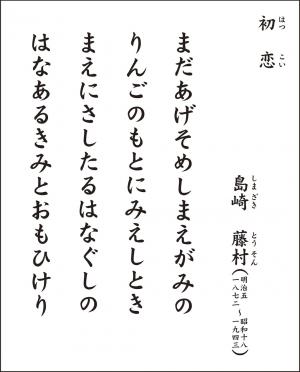 初恋
はつこい
島崎藤村(明治五〜昭和十八 一八七二〜一九四三)
しまざきとうそん
まだあげそめしまえがみの
りんごのもとにみえしとき
まえにさしたるはなぐしの
はなあるきみとおもひけり